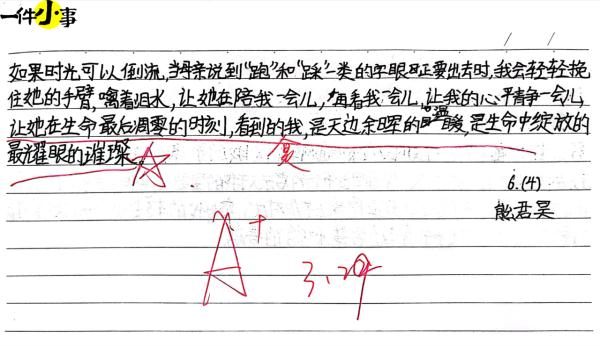 一件小事
如果时光可以倒流,当母亲说到“跑”和“踩”一类的字眼时正要出去时,我会轻轻挽
住她的手臂,噙着泪水,让她在陪我一会儿,再看我一会儿,让我的心平静一会儿,
让她在生命最后凋零的时刻,看到的我,是天边余晖的温暖,是生命中绽放的
最耀眼的璀璨。
复
6.(4)
熊君昊
A+